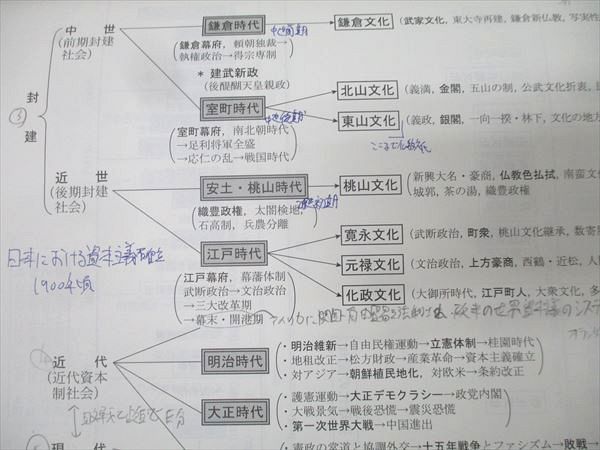 中世
(前期封建
社会)
鎌倉時代
鎌倉文化
(武家文化, 東大寺再建, 鎌倉新仏教, 写実性
鎌倉幕府, 頼朝独裁→
執権政治→得宗専制
* 建武新政
(後醍醐天皇親政)
封建
室町時代
北山文化
(義満, 金閣, 五山の制, 公武文化折衷,
東山文化
(義政, 銀閣, 一向一揆・林下, 文化の地方
室町幕府, 南北朝時代
→足利将軍全盛
→応仁の乱→戦国時代
近世
(後期封建
社会)
安土・桃山時代
桃山文化
新興大名・豪商, 仏教色払拭, 南蛮文
城郭, 茶の湯, 織豊政権
織豊政権, 太閤検地,
石高制, 兵農分離
日本における資本主義確立
1900年頃
江戸時代
寛永文化
(武断政治, 町衆, 桃山文化継承, 数寄屋
元禄文化
(文治政治, 上方豪商, 西鶴・近松, 人
化政文化
(大御所時代, 江戸町人, 大衆文化, 多
江戸幕府, 幕藩体制
武断政治→文治政治
→三大改革期
→幕末・開港期
近代
(近代資本
制社会)
明治時代
・明治維新→自由民権運動→立憲体制→桂園時代
・地租改正→松方財政→産業革命→資本主義確立
・対アジア→朝鮮植民地化, 対欧米→条約改正
大正時代
・護憲運動→大正デモクラシー→政党内閣
・大戦景気→戦後恐慌→震災恐慌
・第一次世界大戦→中国進出
現代
・憲政の常道と協調外交→十五年戦争とファシズム→敗戦→